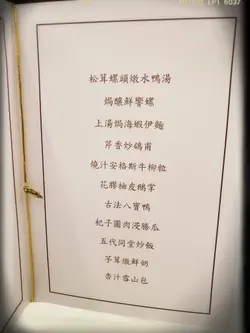 松茸螺頭燉水鴨湯
焗釀鮮響螺
上湯焗海蝦伊麵
芹香炒鴿甫
燒汁安格斯牛柳粒
花膠柚皮鵝掌
古法八寶鴨
杞子圓肉浸勝瓜
五代同堂炒飯
子茸燉鮮奶
杏汁雪山包